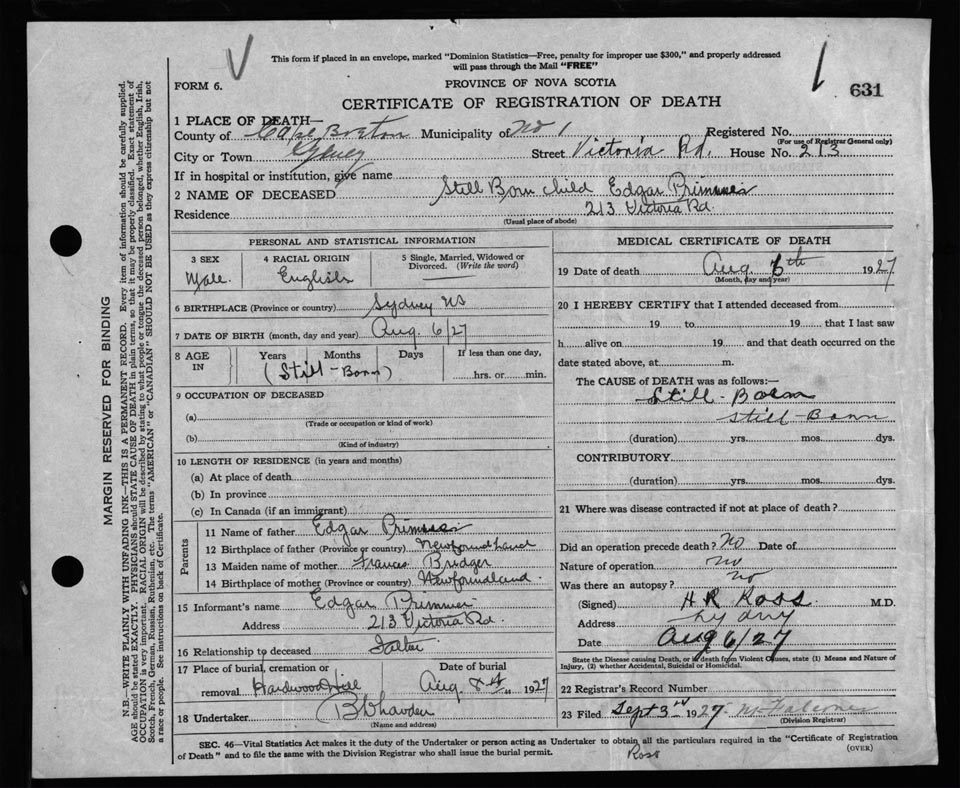 This form if placed in an envelope, marked "Dominion Statistics—Free, penalty for improper use $300," and properly addressed
will pass through the Mail "FREE"
FORM 6.
PROVINCE OF NOVA SCOTIA
631
CERTIFICATE OF REGISTRATION OF DEATH
1 PLACE OF DEATH—
County of Cape Breton Municipality of No 1 Registered No.
(For use of Registrar General only)
City or Town Sydney Street Victoria Rd. House No. 213
If in hospital or institution, give name
2 NAME OF DECEASED Still Born child Edgar Primmer
Residence 213 Victoria Rd.
(Usual place of abode)
PERSONAL AND STATISTICAL INFORMATION
3 SEX
Male.
4 RACIAL ORIGIN
English
5 Single, Married, Widowed or
Divorced. (Write the word)
6 BIRTHPLACE (Province or country) Sydney NS
7 DATE OF BIRTH (month, day and year) Aug. 6/27
8 AGE IN
Years Months Days
If less than one day,
hrs. or min.
(Still-Born)
9 OCCUPATION OF DECEASED
(a)
(Trade or occupation or kind of work)
(b)
(Kind of industry)
10 LENGTH OF RESIDENCE (in years and months)
(a) At place of death
(b) In province
(c) In Canada (if an immigrant)
Parents
11 Name of father Edgar Primmer
12 Birthplace of father (Province or country) Newfoundland
13 Maiden name of mother Frances Bridger
14 Birthplace of mother (Province or country) Newfoundland.
15 Informant's name Edgar Primmer
Address 213 Victoria Rd.
16 Relationship to deceased Father
17 Place of burial, cremation or
removal Hardwood Hill
Date of burial
Aug. 8th 1927
18 Undertaker
(Name and address)
MEDICAL CERTIFICATE OF DEATH
19 Date of death Aug. 6th 1927
(Month, day and year)
20 I HEREBY CERTIFY that I attended deceased from
19 to 19 that I last saw
h alive on 19 and that death occurred on the
date stated above, at m.
The CAUSE OF DEATH was as follows:—
Still-Born
Still-Born
(duration) yrs. mos. dys.
CONTRIBUTORY.
(duration) yrs. mos. dys.
21 Where was disease contracted if not at place of death?
Did an operation precede death? No Date of
Nature of operation no
Was there an autopsy? no
(Signed) H R Ross M.D.
Address Sydney
Date Aug 6/27
State the Disease causing Death, or in death from Violent Causes, state (1) Means and Nature of
Injury, (2) whether Accidental, Suicidal or Homicidal.
22 Registrar's Record Number
23 Filed Sept 3rd 1927
(Division Registrar)
SEC. 46—Vital Statistics Act makes it the duty of the Undertaker or person acting as Undertaker to obtain all the particulars required in the "Certificate of Registration
of Death" and to file the same with the Division Registrar who shall issue the burial permit.
(OVER)
Ross
MARGIN RESERVED FOR BINDING
N.B.—WRITE PLAINLY WITH UNFADING INK—THIS IS A PERMANENT RECORD. Every item of information should be carefully supplied.
AGE should be stated EXACTLY. PHYSICIANS should STATE CAUSE OF DEATH in plain terms, so that it may be properly classified. Exact statement of
OCCUPATION is very important. RACIAL ORIGIN will be described by stating to what people or tongue the deceased person belonged, whether English, Irish,
Scotch, French, German, Russian, Ruthenian, etc. The terms "AMERICAN" or "CANADIAN" SHOULD NOT BE USED as they express citizenship but not
a race or people. See instructions on back of Certificate.